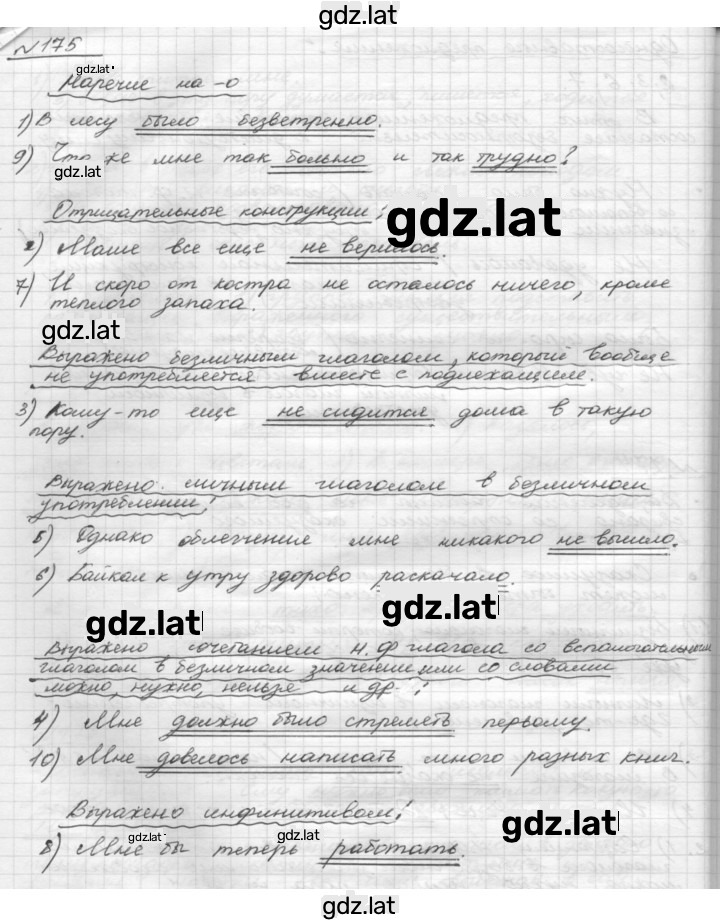 gdz.lat
№175
gdz.lat
Наречие на -о
1) В лесу было безветренно.
9) Что же мне так больно и так трудно?
gdz.lat
gdz.lat
Отрицательные конструкции:
2) Маше все еще не верилось.
7) И скоро от костра не осталось ничего, кроме
теплого запаха.
gdz.lat
Выражено безличным глаголом, который вообще
не употребляется вместе с подлежащим.
3) Кому-то еще не сидится дома в такую
пору.
Выражено личным глаголом в безличном
употреблении:
5) Однако облегчения мне никакого не вышло.
6) Байкал к утру здорово раскачало.
gdz.lat
gdz.lat
Выражено сочетанием н.ф глагола со вспомогательным
глаголом в безличном значении или со словами
можно, нужно, нельзя и др.:
4) Мне должно было стрелять первому.
10) Мне довелось написать много разных книг.
Выражено инфинитивом:
gdz.lat
gdz.lat
gdz.lat
8) Мне бы теперь работать.
gdz.lat